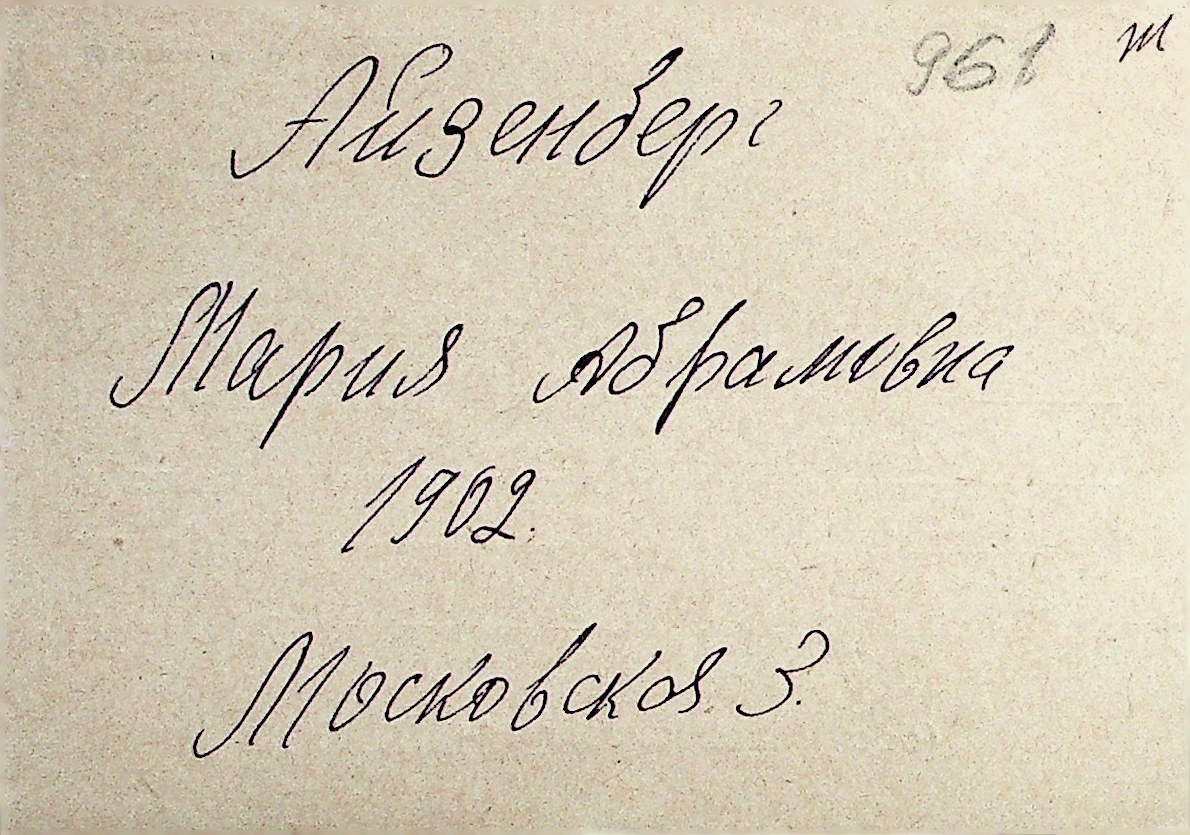 961 т
Айзенберг
Мария Абрамовна
1902.
Московская 3.